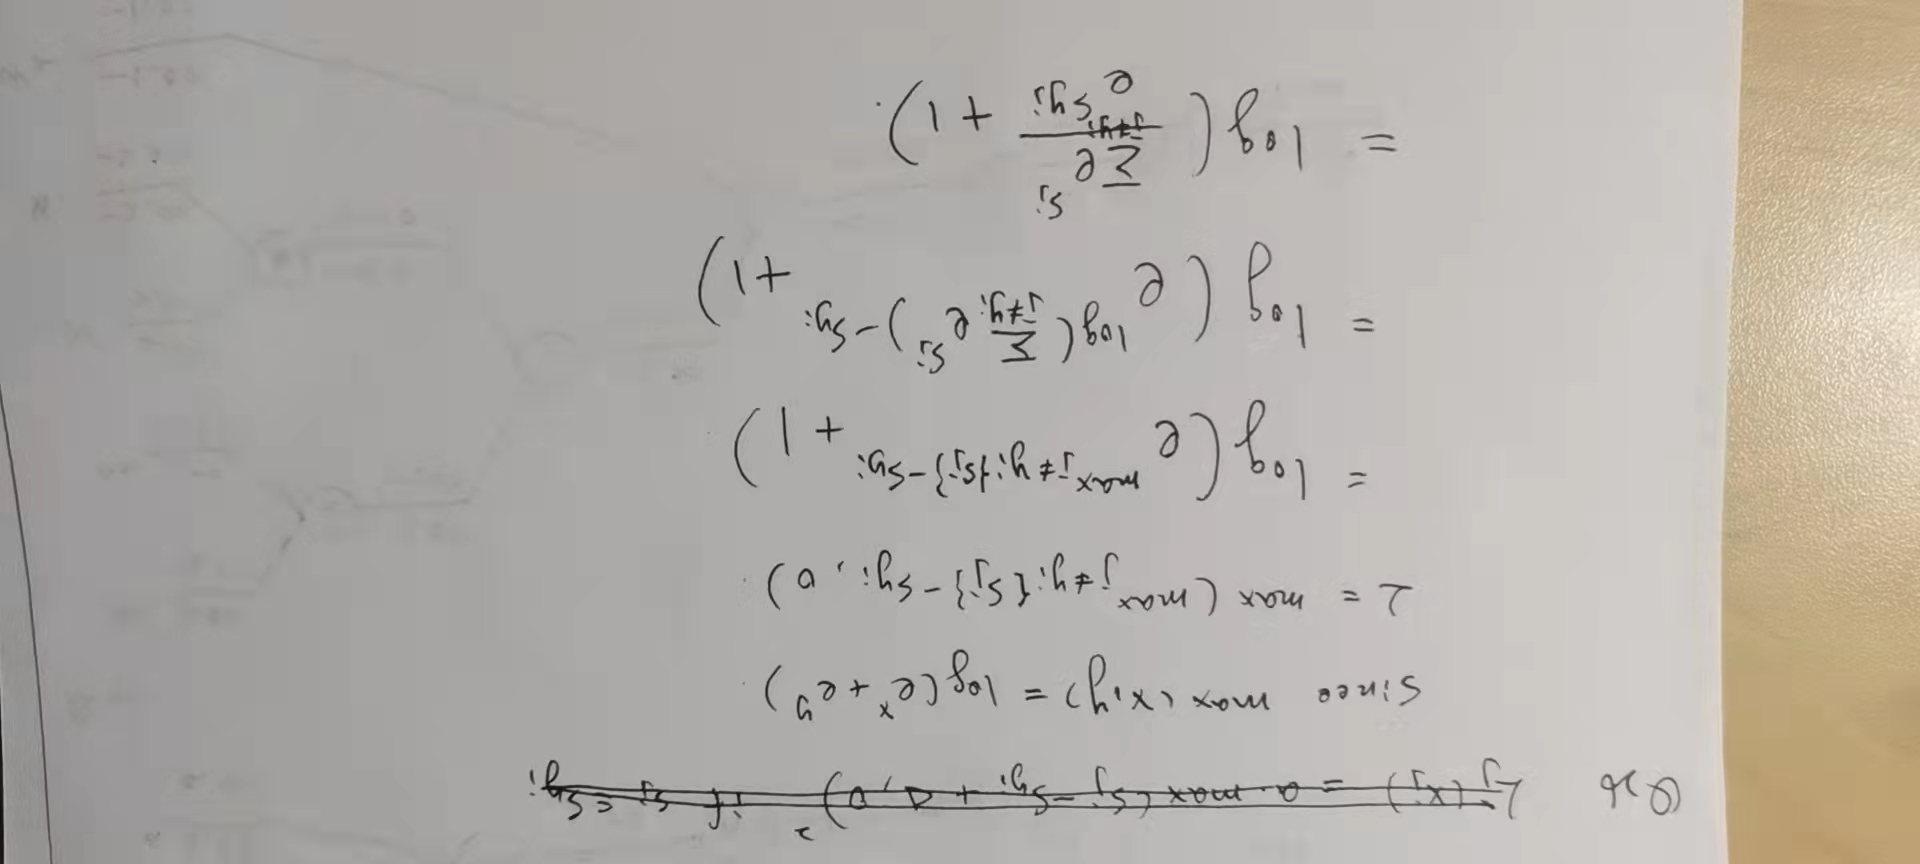 L_j(x_j) = a·max(s_j - s_{y_i} + Δ, 0) if s_j = s_{y_i}
Since max(x,y) = log(e^x + e^y)
L = max(max_{j≠y_i}{s_j} - s_{y_i}, 0)
= log(e^{max_{j≠y_i}{s_j} - s_{y_i}} + 1)
= log(e^{log(Σ_{j≠y_i} e^{s_j}) - s_{y_i}} + 1)
= log(Σ_{j≠y_i} e^{s_j} / e^{s_{y_i}} + 1)